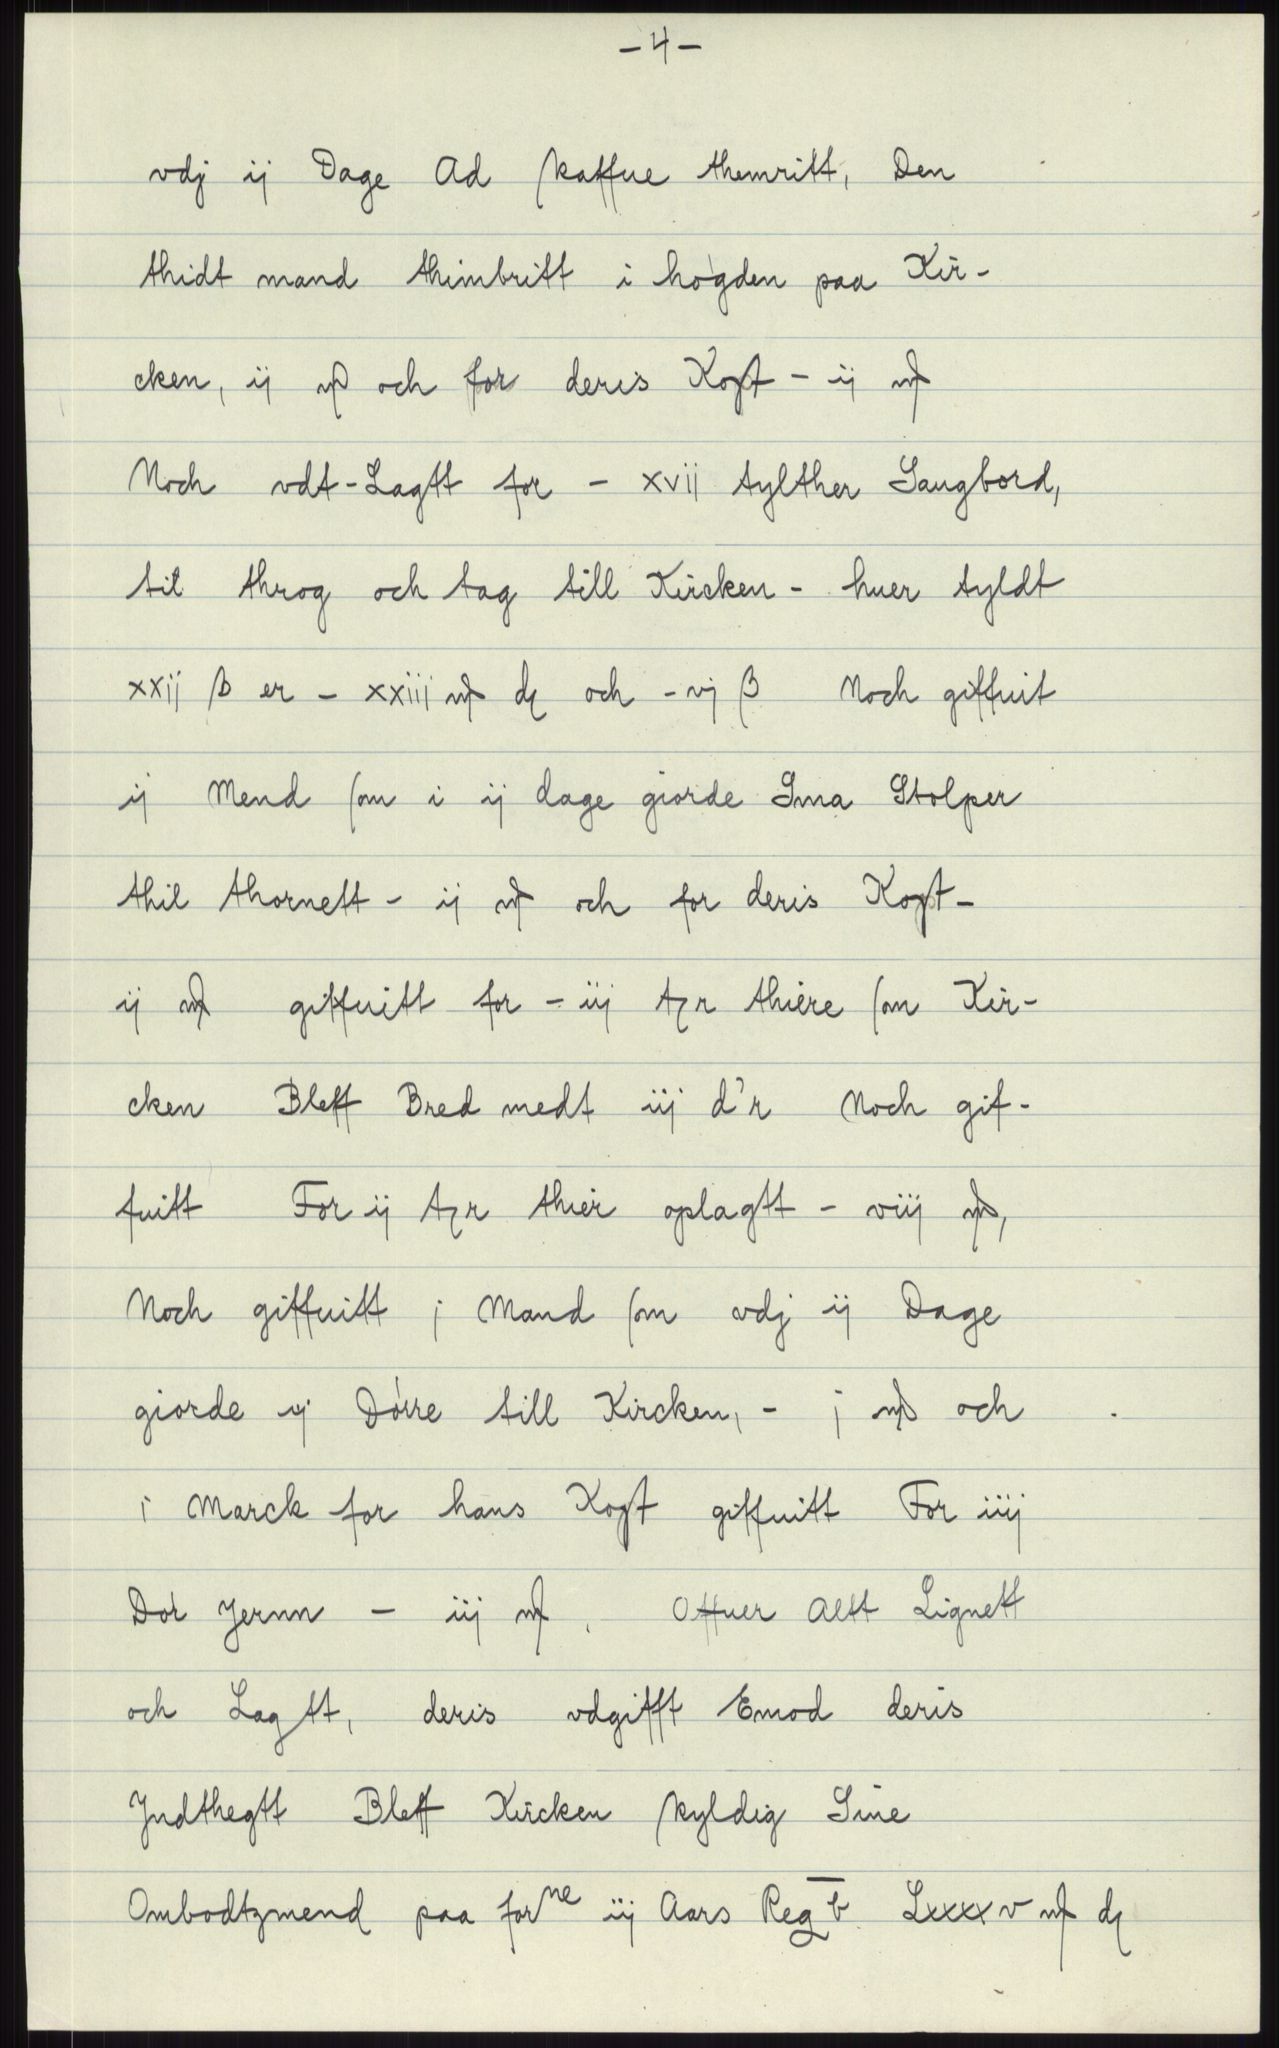 - 4 -
vdj ij Dage Ad skaffue themritt, Den
thidt mand thimbritt i høgden paa Kir-
cken, ij mk och for deris Kost - ij mk
Noch vdt-Lagtt for - xvij tylther Saugbord,
til throg och tag till Kircken - huer tyldt
xxij ß er - xxiij mk d och - vj ß Noch giffuit
ij Mend som i ij dage giorde Sma Stolper
thil thornett - ij mk och for deris Kost -
ij mk giffuitt for - iij tzr thiere som Kir-
cken Bleff Bred medt iij d'r Noch gif-
fuitt For ij tzr thier oplagtt - viij mk,
Noch giffuitt j Mand som vdj ij Dage
giorde ij Dørre till Kircken, - j mk och
i Marck for hans Kost giffuitt For iiij
Dør Jernn - iij mk. Offuer Altt Lignett
och Lagtt, deris vdgifft Emod deris
Jndthegtt Bleff Kircken skyldig Sine
Ombodtzmend paa forne iij Aars Regb Lxxxv mk d